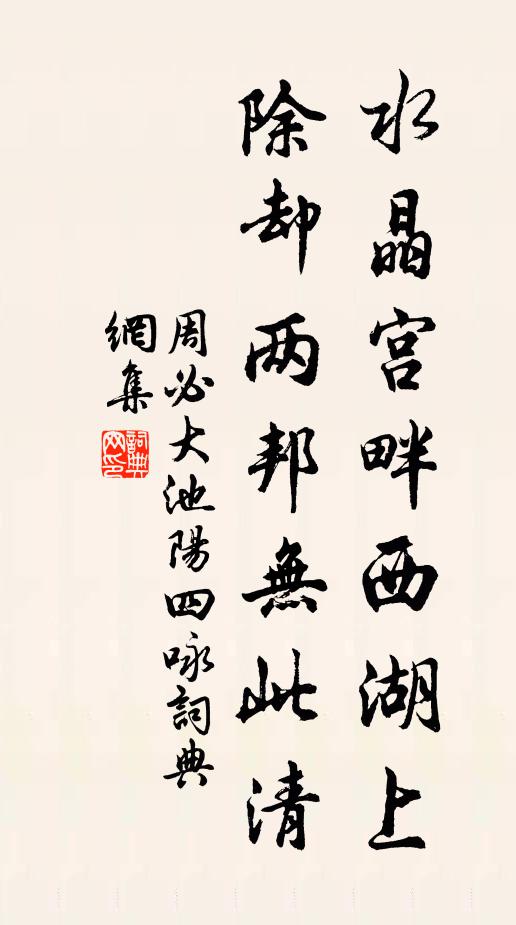 水晶宫畔西湖上
除却两邦無此清
周必大池陽四咏詞典
網集
詞典
网印